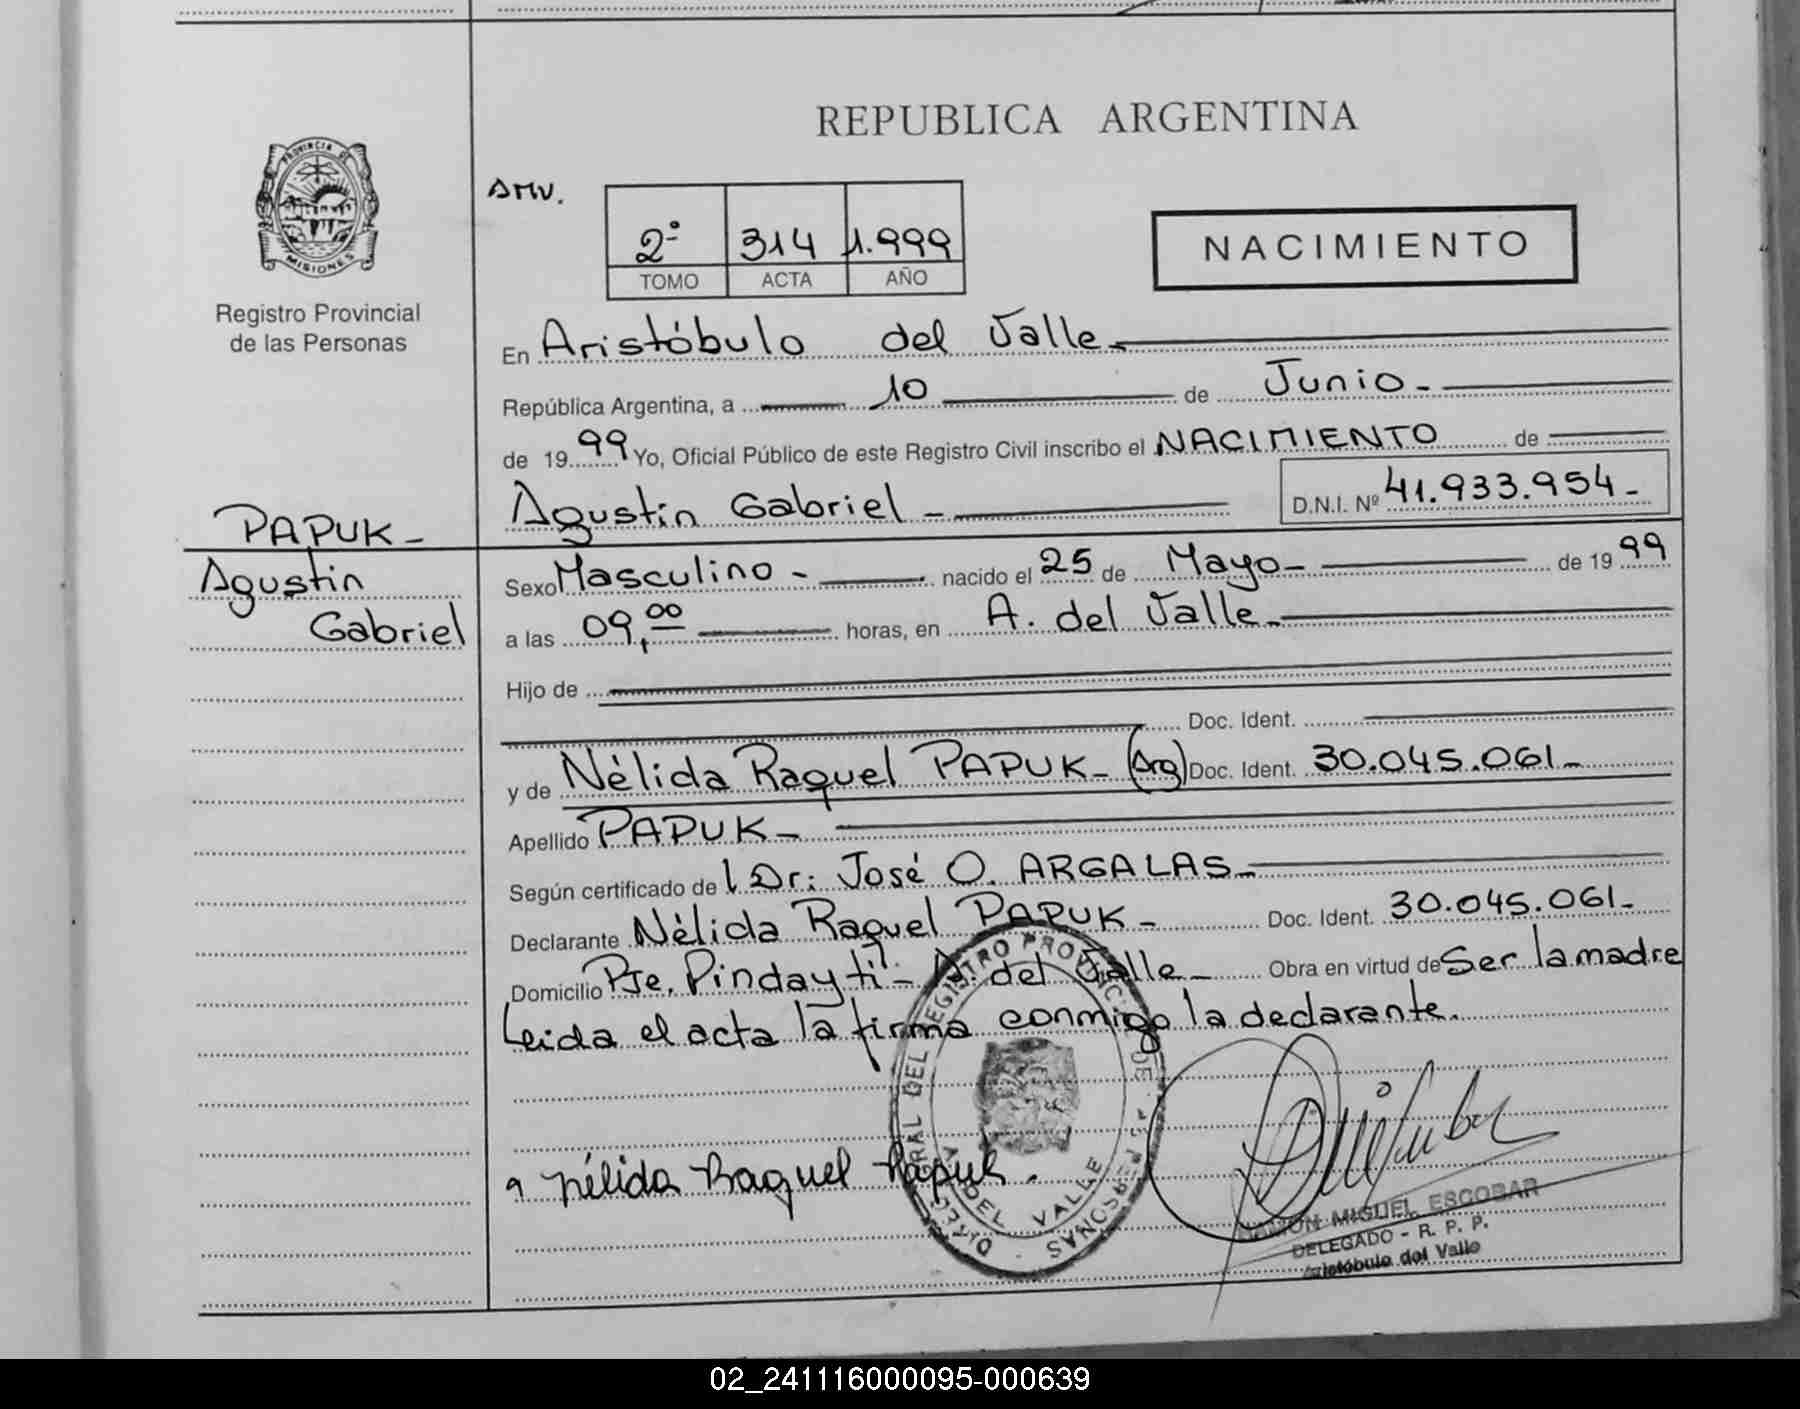 REPUBLICA ARGENTINA
PROVINCIA DE
MISIONES
Registro Provincial
de las Personas
AMV.
2º 314 1.999
TOMO ACTA AÑO
NACIMIENTO
En Aristóbulo del Valle
República Argentina, a 10 de Junio
de 1999 Yo, Oficial Público de este Registro Civil inscribo el NACIMIENTO de
Agustin Gabriel D.N.I. Nº 41.933.954
PAPUK
Agustin
Gabriel
Sexo Masculino nacido el 25 de Mayo de 1999
a las 09,00 horas, en A. del Valle
Hijo de
Doc. Ident.
y de Nélida Raquel PAPUK (Arg) Doc. Ident. 30.045.061
Apellido PAPUK
Según certificado de Dr: José O. ARGALAS
Declarante Nélida Raquel PAPUK Doc. Ident. 30.045.061
Domicilio Pje. Pindaytí A. del Valle Obra en virtud de Ser la madre
Leida el acta la firma conmigo la declarante.
DIREC. GRAL DEL REGISTRO PROVINCIAL DE LAS PERSONAS
A. DEL VALLE
Nélida Raquel Papuk.
RAMON MIGUEL ESCOBAR
DELEGADO - R. P. P.
Aristóbulo del Valle
02_241116000095-000639